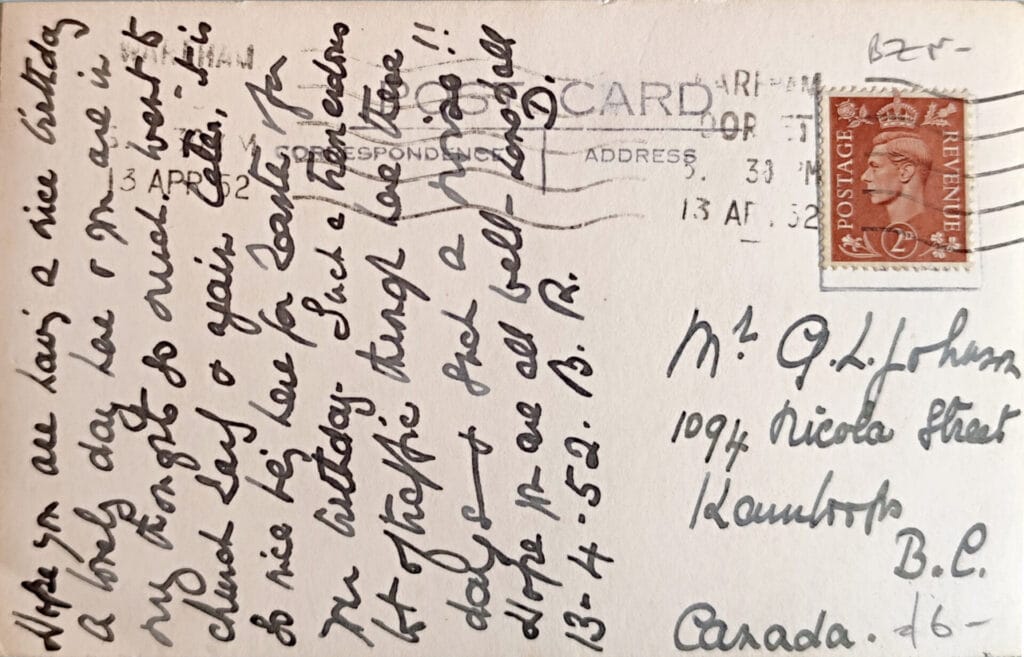 Hope you are having a nice birthday
A lovely day here & you are in
my thoughts so much. Went to
church early & again later, it is
so nice being here for Easter for
your birthday. Such a tremendous
lot of traffic through here these
days — & such a noise!!
Hope you are all well - Love to all
13-4-52. B. R. D.
POST CARD
CORRESPONDENCE
ADDRESS
WAREHAM
3 APR 52
WAREHAM
DORSET
30 PM
13 APR 52
BZN-
POSTAGE
REVENUE
2D
Mr. G.L. Johnson
1094 Nicola Street
Kamloops
B.C.
Canada.
16-